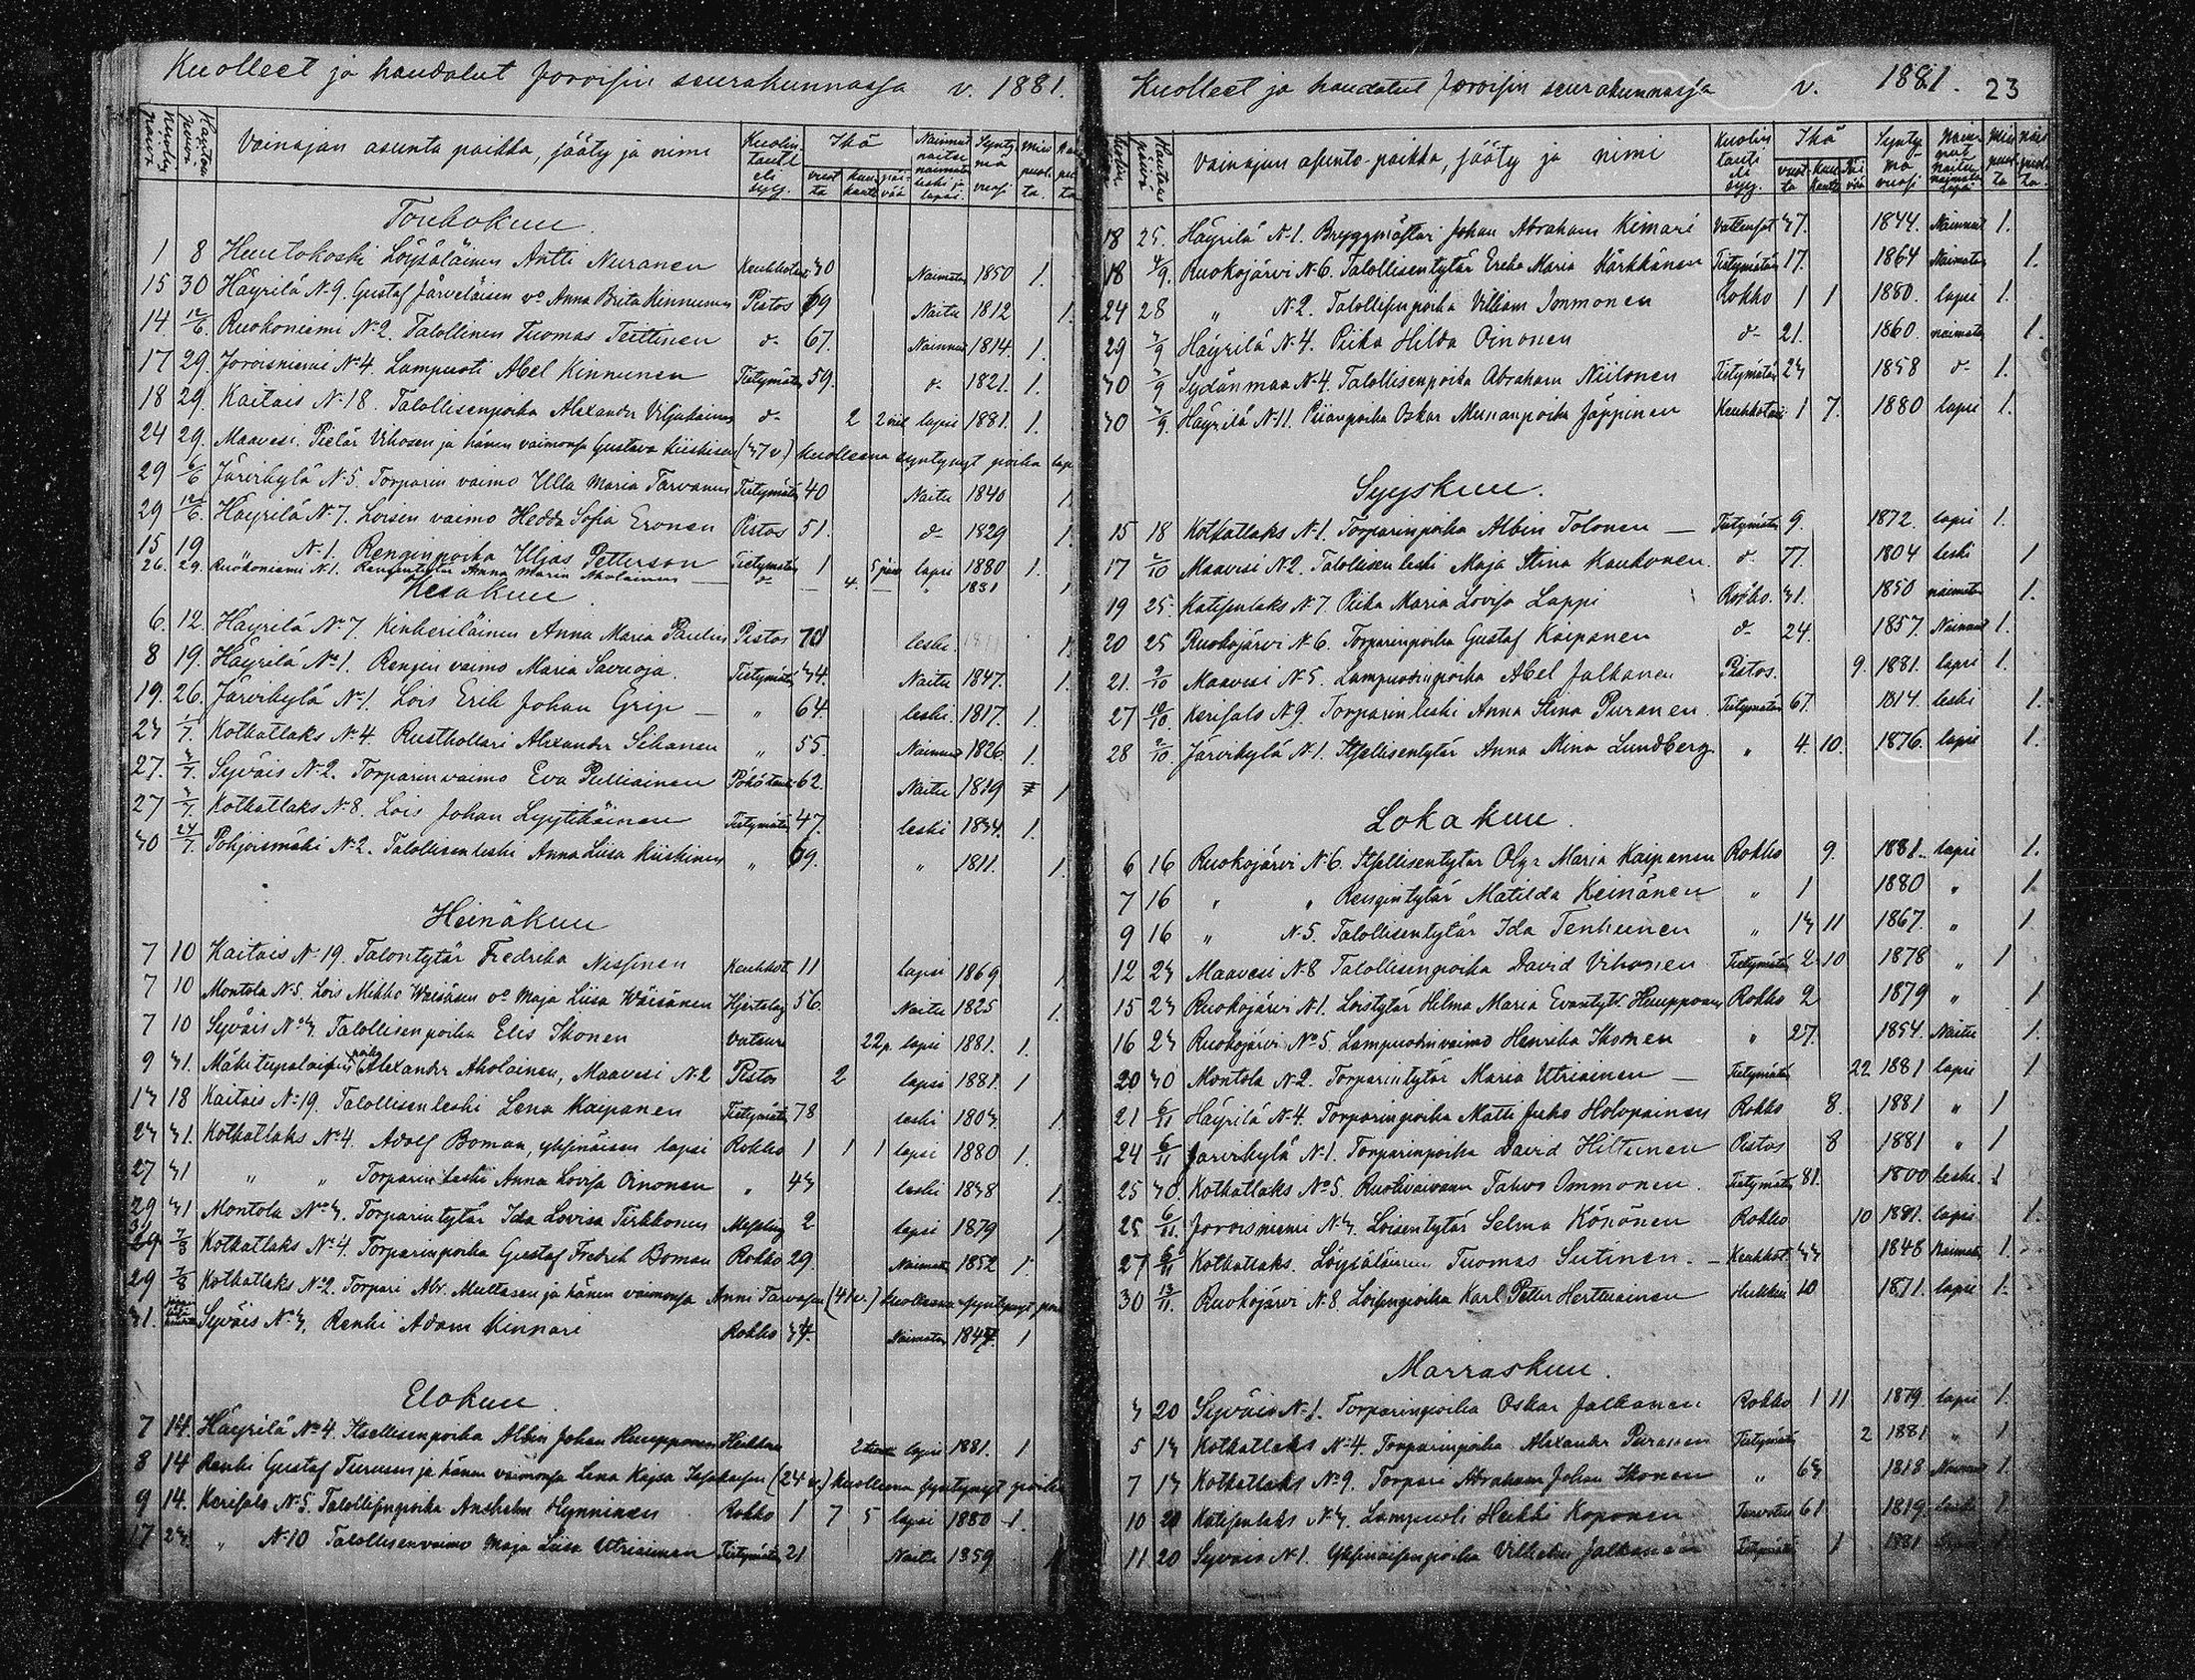 Kuolleet ja haudatut Joroisin seurakunnassa v. 1881.
Kuolin päivä Hautaus päivä Vainajan asunto paikka, sääty ja nimi Kuolin tauti eli syy. Ikä vuotta kuukautta päivää Nainnut naitu naimaton leski ja lapsi. Synty mä vuosi mies puolta.
Toukokuu.
1 8 Huutokoski Löysäläinen Antti Nuranen Keuhkotauti 30 Naimaton 1850 1.
15 30 Häyrilä N:9. Gustaf Järveläisen vo Anna Brita Kinnunen Pistos 69 Naitu 1812 1.
14 12/6. Ruokoniemi No 2. Talollinen Tuomas Teittinen d:o 67. Nainnut 1814. 1.
17 29. Joroisniemi No 4. Lampuoti Abel Kinnunen Tietymätön 59. d:o 1821. 1.
18 29. Kaitais N:18. Talollisenpoika Alexander Viljakainen d:o 2 2 viik lapsi 1881. 1.
24 29. Maavesi. Pietar Vihosen ja hänen vaimonsa Gustava Kiiskisen (37 v.) kuolleena syntynyt poika laps
29 6/6 Järvikylä N:5. Torparin vaimo Ulla Maria Tarvanen Tietymätön 40 Naitu 1840 1
29 12/6. Häyrilä N:7. Loisen vaimo Hedda Sofia Eronen Pistos 51. d:o 1829 1.
15 19 N:1. Renginpoika Uljas Petterson Tietymätön 1 5 päiv lapsi 1880 1.
26. 29. Ruokoniemi N:1. Rengintytär Anna Maria Aholainen d:o 4. " 1881 1
Kesäkuu
6. 12. Häyrilä No 7. Kinkeriläinen Anna Maria Paulin Pistos 70 leski. 1.
8 19. Häyrilä No 1. Rengin vaimo Maria Savuoja. Tietymätön 34. Naitu 1847. 1.
19. 26. Järvikylä No 1. Lois Erik Johan Grip " 64. leski. 1817. 1.
23 1/7. Kotkatlaks No 4. Rusthollari Alexander Sihanen " 55. Nainnut 1826. 1.
27. 3/7. Syväis N:2. Torparinvaimo Eva Pulliainen Pöhötauti 62. Naitu 1819 1
27 3/7. Kotkatlaks No 8. Lois Johan Lyytikäinen Tietymätön 47. leski 1834. 1.
30 24/7. Pohjoismäki N:2. Talollisenleski Anna Liisa Kiiskinen " 69. " 1811. 1.
Heinäkuu
7 10 Kaitais N:19. Talontytär Fredrika Nissinen Keuhkot 11 lapsi 1869 1
7 10 Montola N:5. Lois Mikko Wäisäsen vo Maja Liisa Wäisänen 56. Naitu 1825 1.
7 10 Syväis No 3. Talollisenpoika Elis Ikonen 22 p. lapsi 1881. 1.
9 31. Mäkitupalaisen poika Alexander Aholainen, Maavesi N:2 Pistos 2 lapsi 1881. 1
13 18 Kaitais No 19. Talollisenleski Lena Kaipanen Tietymätön 78 leski 1803. 1
23 31. Kotkatlaks No 4. Adolf Boman, yksinäisen lapsi Rokko 1 1 1 lapsi 1880 1.
27 31 " " Torparin leski Anna Lovisa Oinonen " 43 leski 1838 1.
29 31 Montola No 3. Torparintytär Ida Lovisa Tirkkonen 2 lapsi 1879 1
31 7/8 Kotkatlaks No 4. Torparinpoika Gustaf Fredrik Boman Rokko 29. Naimaton 1852 1.
29 7/8 Kotkatlaks No 2. Torpari Abr. Multasen ja hänen vaimonsa Anni Tarvasen (41 v.) kuolleena syntynyt
31. Syväis No 3. Renki Adam Kinnari Rokko 34. Naimaton 1847. 1
Elokuu.
7 14. Häyrilä No 4. Itsellisenpoika Albin Johan Huupponen Heikkou 2 lapsi 1881. 1
8 14 Renki Gustaf Turusen ja hänen vaimonsa Lena Kajsa (24 v.) kuolleena syntynyt poika
9 14. Kerisalo N:5. Talollisenpoika Anshelm Hynninen Rokko 1 7 5 lapsi 1880 1.
17 23. " N:10 Talollisenvaimo Maja Liisa Utriainen Tietymätön 21 Naitu 1859 1
Kuolleet ja haudatut Joroisin seurakunnassa v. 1881. 23
Kuolin Hautaus päivä Vainajan asunto-paikka, sääty ja nimi Kuolin tauti eli syy. Ikä vuotta kuukautta päivää Synty mä vuosi Nainnut naitu naimaton lapsi mies puolta nais puolta.
18 25. Häyrilä N:1. Bryggmästari Johan Abraham Kimari 37. 1844. Nainnut 1.
18 4/9. Ruokojärvi N:6. Talollisentytär Erika Maria Kärkkänen Tietymätön 17. 1864 Naimaton 1.
24 28 " N:2. Talollisenpoika Villiam Immonen Rokko 1 1 1880. lapsi 1.
29 3/9 Häyrilä N:4. Piika Hilda Oinonen d:o 21. 1860. naimaton 1.
30 3/9 Sydänmaa N:4. Talollisenpoika Abraham Niilonen Tietymätön 23 1858 d:o 1.
30 3/9. Häyrilä N:11. Piianpoika Oskar Munanpoika Jäppinen Keuhkotau 1 7. 1880 lapsi 1.
Syyskuu.
15 18 Kotkatlaks N:1. Torparinpoika Albin Tolonen Tietymätön 9. 1872. lapsi 1.
17 2/10 Maavesi N:2. Talollisen leski Maja Stina Kaukonen. d:o 77. 1804 leski 1
19 25. Katisenlaks N:7. Piika Maria Lovisa Lappi Rokko. 31. 1850 naimaton 1.
20 25 Ruokojärvi N:6. Torparinpoika Gustaf Kaipanen d:o 24. 1857. Nainnut 1.
21. 9/10 Maavesi N:5. Lampuodinpoika Abel Jalkanen Pistos. 9. 1881. lapsi 1.
27 10/10. Kerisalo N:9. Torparinleski Anna Stina Puranen. Tietymätön 67. 1814. leski 1.
28 2/10. Järvikylä N:1. Itsellisentytär Anna Mina Lundberg " 4. 10. 1876. lapsi 1.
Lokakuu.
6 16 Ruokojärvi N:6. Itsellisentytär Olga Maria Kaipanen Rokko 9. 1881. lapsi 1.
7 16 " " Rengintytär Matilda Keinänen " 1 1880 " 1
9 16 " N:5. Talollisentytär Ida Tenhunen " 13 11 1867. " 1
12 23 Maavesi N:8 Talollisenpoika David Vihonen Tietymätön 2 10 1878 " 1
15 23 Ruokojärvi N:1. Loistytär Hilma Maria Evantytr. Huupponen Rokko 2 1879 " 1
16 23 Ruokojärvi No 5. Lampuodinvaimo Henrika Ikonen " 27. 1854. Naitu 1.
20 30 Montola N:2. Torparintytär Maria Utriainen Tietymätön 22 1881 lapsi 1
21 6/11 Häyrilä N:4. Torparinpoika Matti Juho Holopainen Rokko 8. 1881 " 1
24 6/11 Järvikylä N:1. Torparinpoika David Hiltunen Pistos 8 1881 " 1
25 30. Kotkatlaks No 5. Ruotivaivanen Tahvo Ommonen. Tietymätön 81. 1800 leski. 1
25 6/11. Joroisniemi N:3. Loisentytär Selma Könönen Rokko 10 1881. lapsi 1.
27 6/11 Kotkatlaks. Löysäläinen Tuomas Sutinen. Keuhkot. 33 1848 Naimaton 1.
30 13/11. Ruokojärvi N:8. Loisenpoika Karl Peter Herttuainen Hukkui 10 1871. lapsi 1.
Marraskuu.
3 20 Syväis N:1. Torparinpoika Oskar Jalkanen Rokko 1 11 1879. lapsi 1.
5 13 Kotkatlaks N:4. Torparinpoika Alexander Puranen Tietymätön 2 1881 " 1
7 13 Kotkatlaks No 9. Torpari Abraham Johan Ikonen " 63 1818 Nainnut 1.
10 20 Katisenlaks N:3. Lampuoti Heikki Koponen 61. 1819. leski 1.
11 20 Syväis N:1. Yksinäisenpoika Vilhelm Jalkanen Tietymätön 1 1881